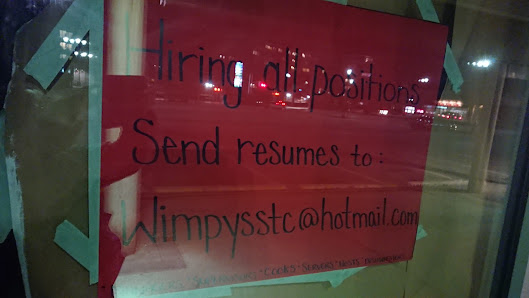 Hiring all positions
Send resumes to:
Wimpysstc@hotmail.com
Cooks • Servers